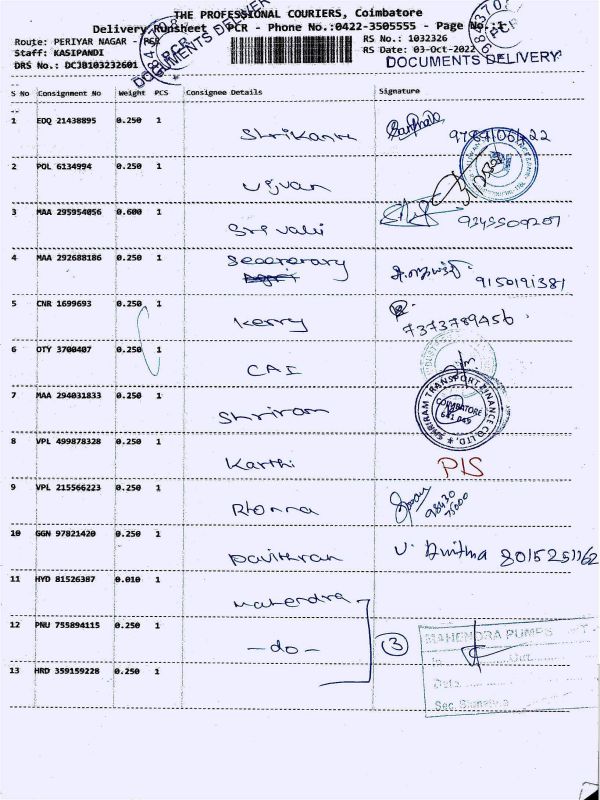 THE PROFESSIONAL COURIERS, Coimbatore
Delivery Runsheet - PCR - Phone No.:0422-3505555 - Page No.:1
Route: PERIYAR NAGAR - PCR
RS No.: 1032326
Staff: KASIPANDI
RS Date: 03-Oct-2022
DRS No.: DCJB103232601
DOCUMENTS DELIVERY
DOCUMENTS DELIVERY
S No Consignment No Weight PCS Consignee Details Signature
1 EDQ 21438895 0.250 1 Shrikanth
2 POL 6134994 0.250 1 Vijvan
3 MAA 295954056 0.600 1 Sri Valli
4 MAA 292688186 0.250 1 Secetrary 9150191381
5 CNR 1699693 0.250 1 Kerry 7373789456
6 OTY 3700407 0.250 1 CAI
7 MAA 294031833 0.250 1 Shriram
SHRIRAM TRANSPORT FINANCE CO LTD.
COIMBATORE
641 049
8 VPL 499878328 0.250 1 Karthi PIS
9 VPL 215566223 0.250 1 98430
75000
10 GGN 97821420 0.250 1 Pavithran 8015251162
11 HYD 81526387 0.010 1 Mahendra
12 PNU 755894115 0.250 1 -do- 3
13 HRD 359159228 0.250 1
MAHENDRA PUMPS
In Out
Date